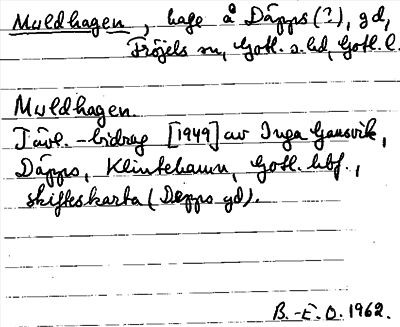 Muldhagen, hage å Däpps (?), gd,
Fröjels sn, Gotl. s. hd, Gotl. l.
Muldhagen.
Tävl.-bidrag [1949] av Inga Gansvik,
Däpps, Klintehamn, Gotl. hbf.,
skifteskarta (Depps gd).
B.-E. O. 1962.